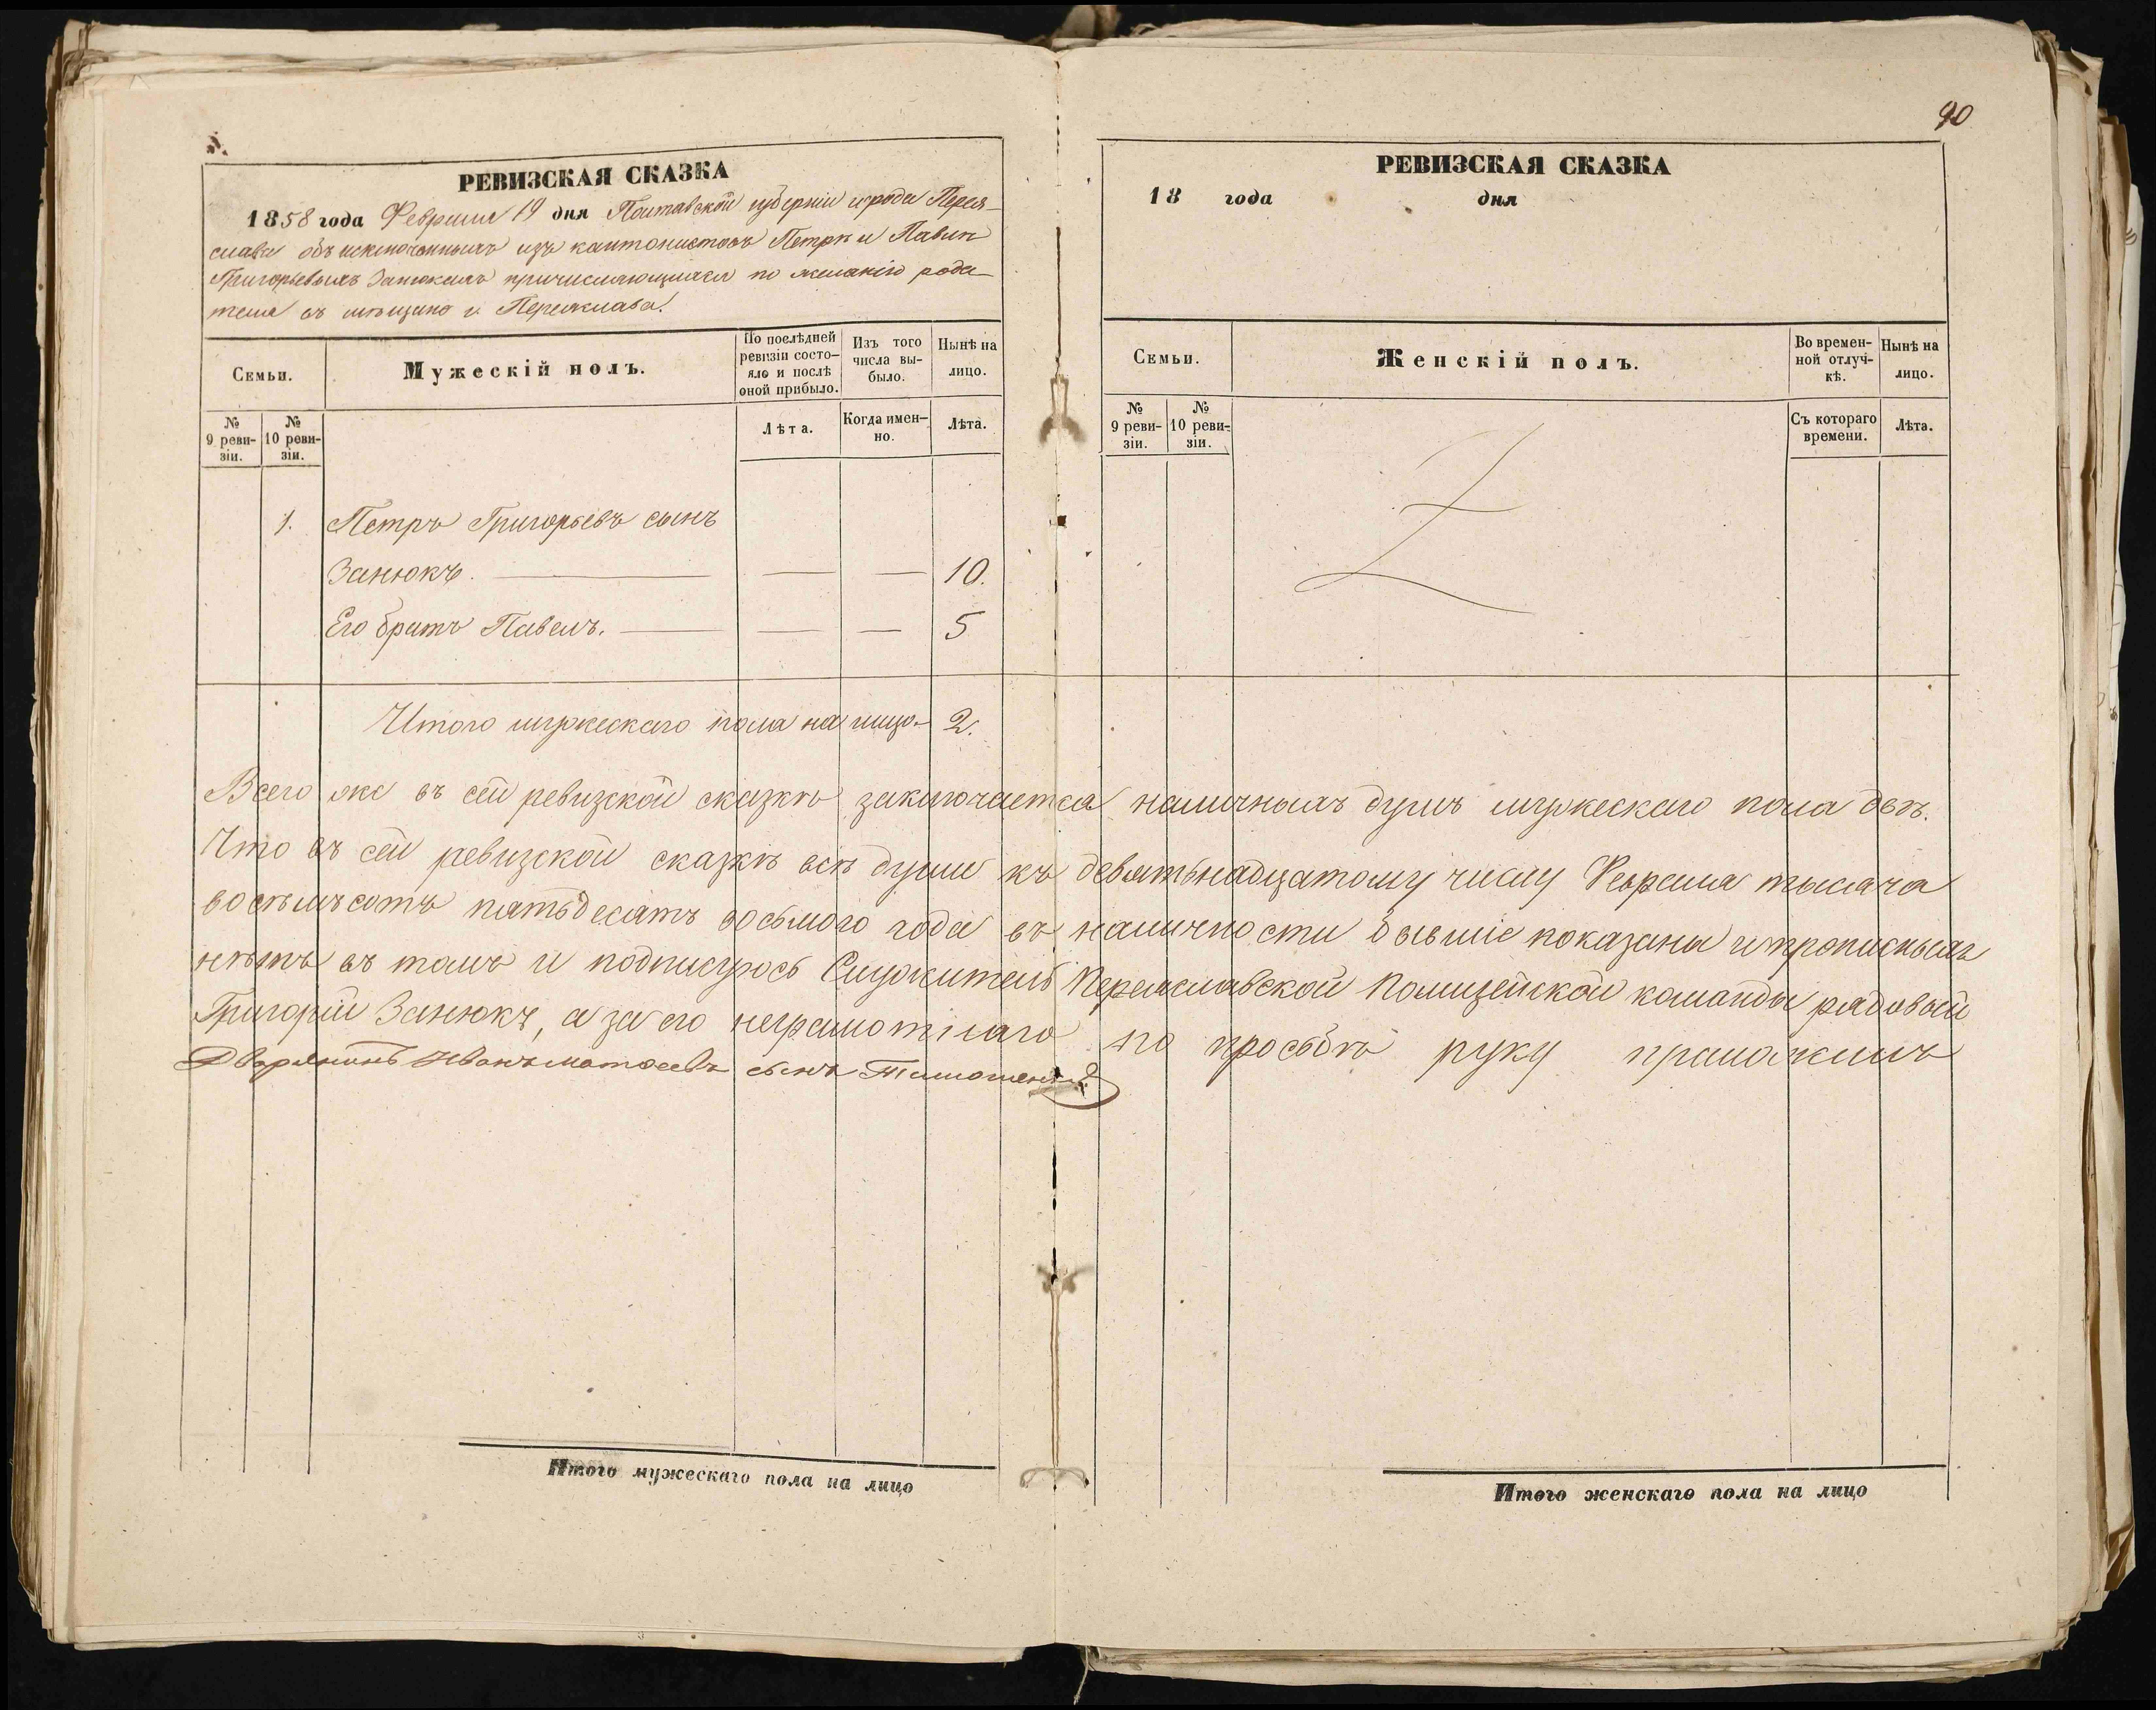 РЕВИЗСКАЯ СКАЗКА
1858 года Февраля 19 дня Полтавской губерніи города Перея-
слава объ исключенныхъ изъ кантонистовъ Петрѣ и Павлѣ
Григорьевыхъ Занюкахъ причисляющихся по желанію роди-
теля въ мѣщане г. Переяслава.
Семьи.
Мужескій полъ.
По послѣдней ревизіи состо-яло и послѣ оной прибыло.
Изъ того числа вы-было.
Нынѣ на лицо.
№ 9 реви-зіи.
№ 10 реви-зіи.
Лѣта.
Когда имен-но.
Лѣта.
1. Петръ Григорьевъ сынъ
Занюкъ. — — — 10.
Его братъ Павелъ. — — — 5
Итого мужескаго пола на лицо — 2.
90
РЕВИЗСКАЯ СКАЗКА
18 года дня
Семьи.
Женскій полъ.
Во времен-ной отлуч-кѣ.
Нынѣ на лицо.
№ 9 реви-зіи.
№ 10 реви-зіи.
Съ котораго времени.
Лѣта.
Всего же въ сей ревизской сказкѣ заключается наличныхъ душъ мужескаго пола двѣ.
Что въ сей ревизской сказкѣ всѣ души къ девятьнадцатому числу Февраля тысяча
восѣмьсотъ пятьдесятъ восьмого года въ наличности бывшіе показаны и прописныхъ
нѣтъ въ томъ и подписуюсь Служитель Переяславской Полицейской команды рядовый
Григорій Занюкъ, а за его неграмотнаго по просьбѣ руку приложилъ
Дворянинъ Иванъ Матвеевъ сынъ
Итого мужескаго пола на лицо
Итого женскаго пола на лицо